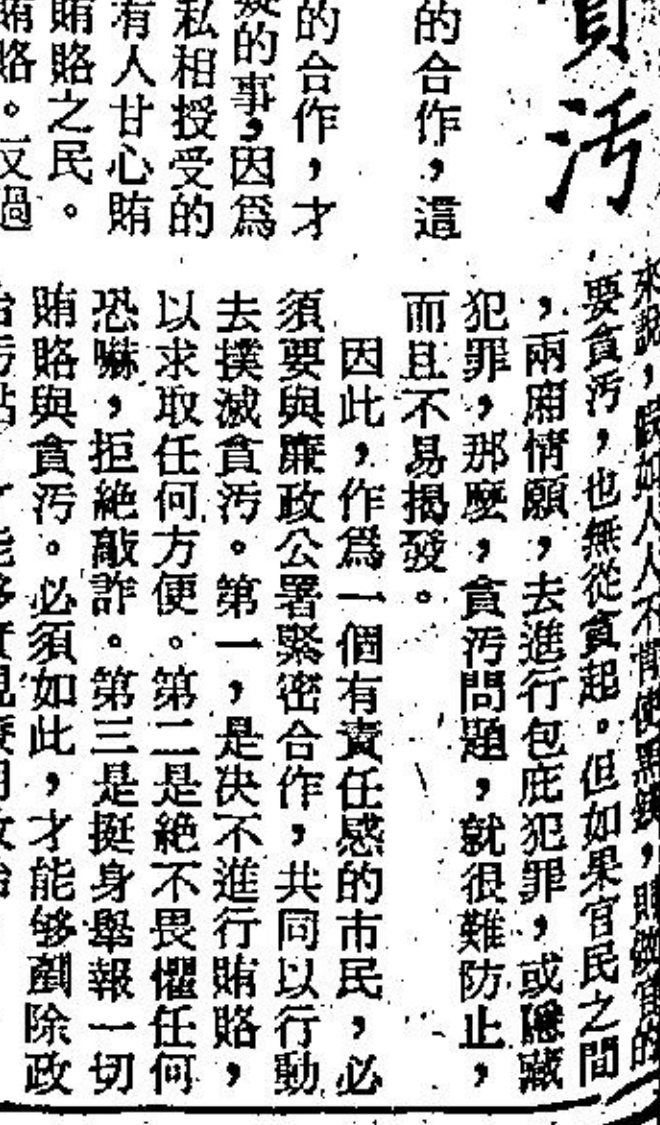 汚
的合作，這
的合作，才
的事，因爲
私相授受的
有人甘心賄
賄賂之民。
賂。反過
來說，假如人人不肯使黑錢，則做官的
要貪汚，也無從貪起。但如果官民之間
，兩廂情願，去進行包庇犯罪，或隱藏
犯罪，那麼，貪汚問題，就很難防止，
而且不易揭發。
因此，作爲一個有責任感的市民，必
須要與廉政公署緊密合作，共同以行動
去撲滅貪汚。第一，是决不進行賄賂，
以求取任何方便。第二是絕不畏懼任何
恐嚇，拒絕敲詐。第三是挺身舉報一切
賄賂與貪汚。必須如此，才能够剷除政